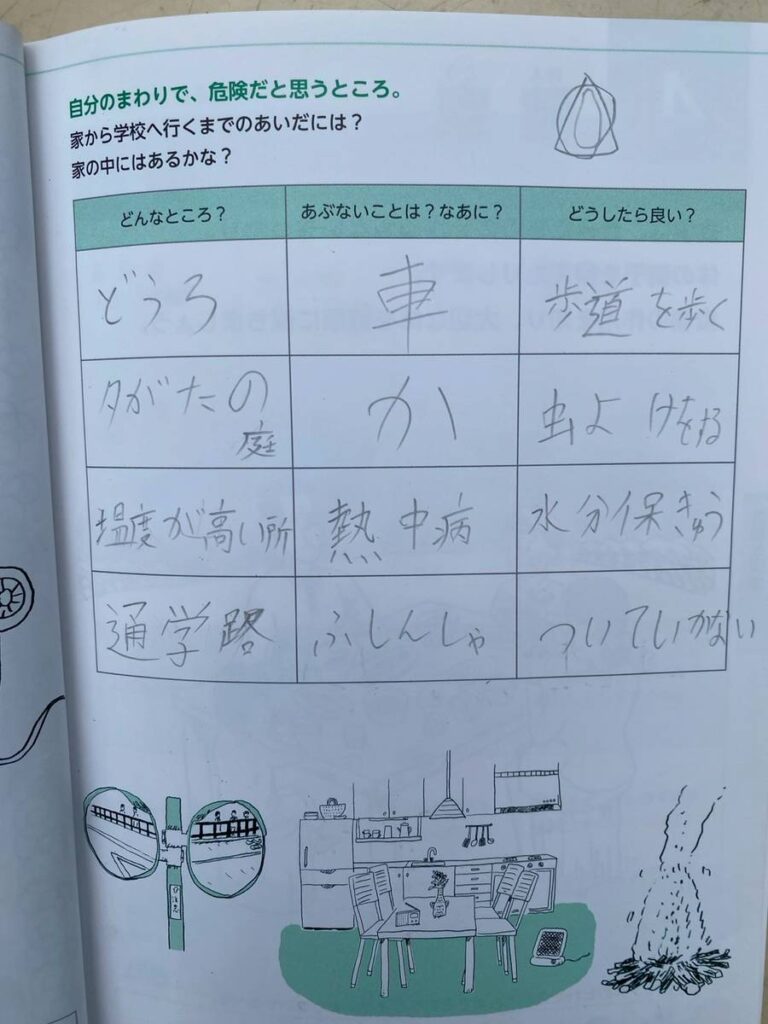 自分のまわりで、危険だと思うところ。
家から学校へ行くまでのあいだには？
家の中にはあるかな？
どんなところ？ あぶないことは？なあに？ どうしたら良い？
どうろ 車 歩道を歩く
夕がたの庭 か 虫よけをする
温度が高い所 熱中病 水分保きゅう
通学路 ふしんしゃ ついていかない